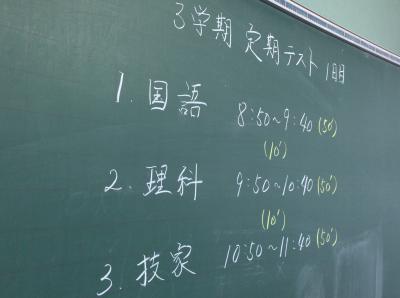 3学期 定期テスト 1日目
1. 国語 8:50~9:40 (50')
(10')
2. 理科 9:50~10:40 (50')
(10')
3. 技家 10:50~11:40 (50')